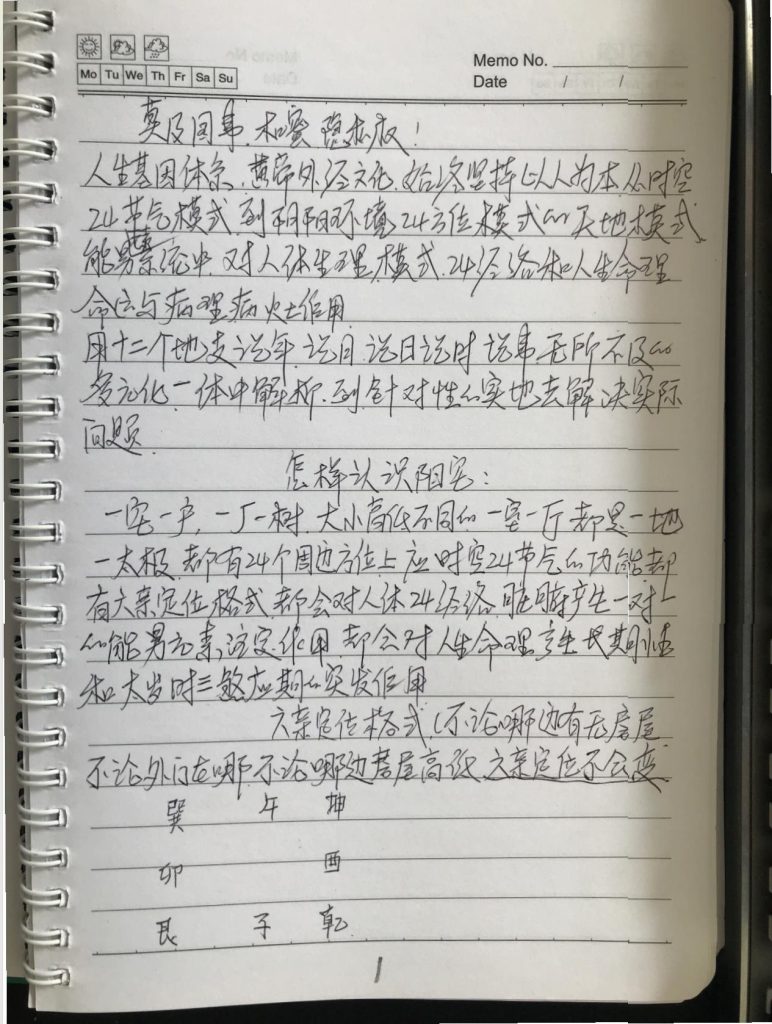 Mo Tu We Th Fr Sa Su
Memo No.
Date / /
莫及国事.和蜜隐私权!
人生基因体系.黄帝外经文化.始终坚持以人为本.从时空
24节气模式到阴阳环境24方位模式的天地模式
能量系统中.对人体生理模式.24经络和人生命理
命运与病理病灶作用
用十二个地支说年.说月.说日说时说事.无所不及的
多元化一体中解析.到针对性的实地去解决实际
问题
怎样认识阳宅:
一宅一户,一厂一树.大小高低不同的一室一厅都是一地
一太极.都有24个周边方位上应时空24节气的功能都
有六亲定位格式.都会对人体24经络.脏腑产生一对一
的能量元素注定作用.都会对人生命理产生长期性
和太岁时三煞应期的突发作用
六亲定位格式.(不论哪边有无房屋
不论外门在哪.不论哪边房屋高低.六亲定位不会变
巽 午 坤
卯 酉
艮 子 乾
1